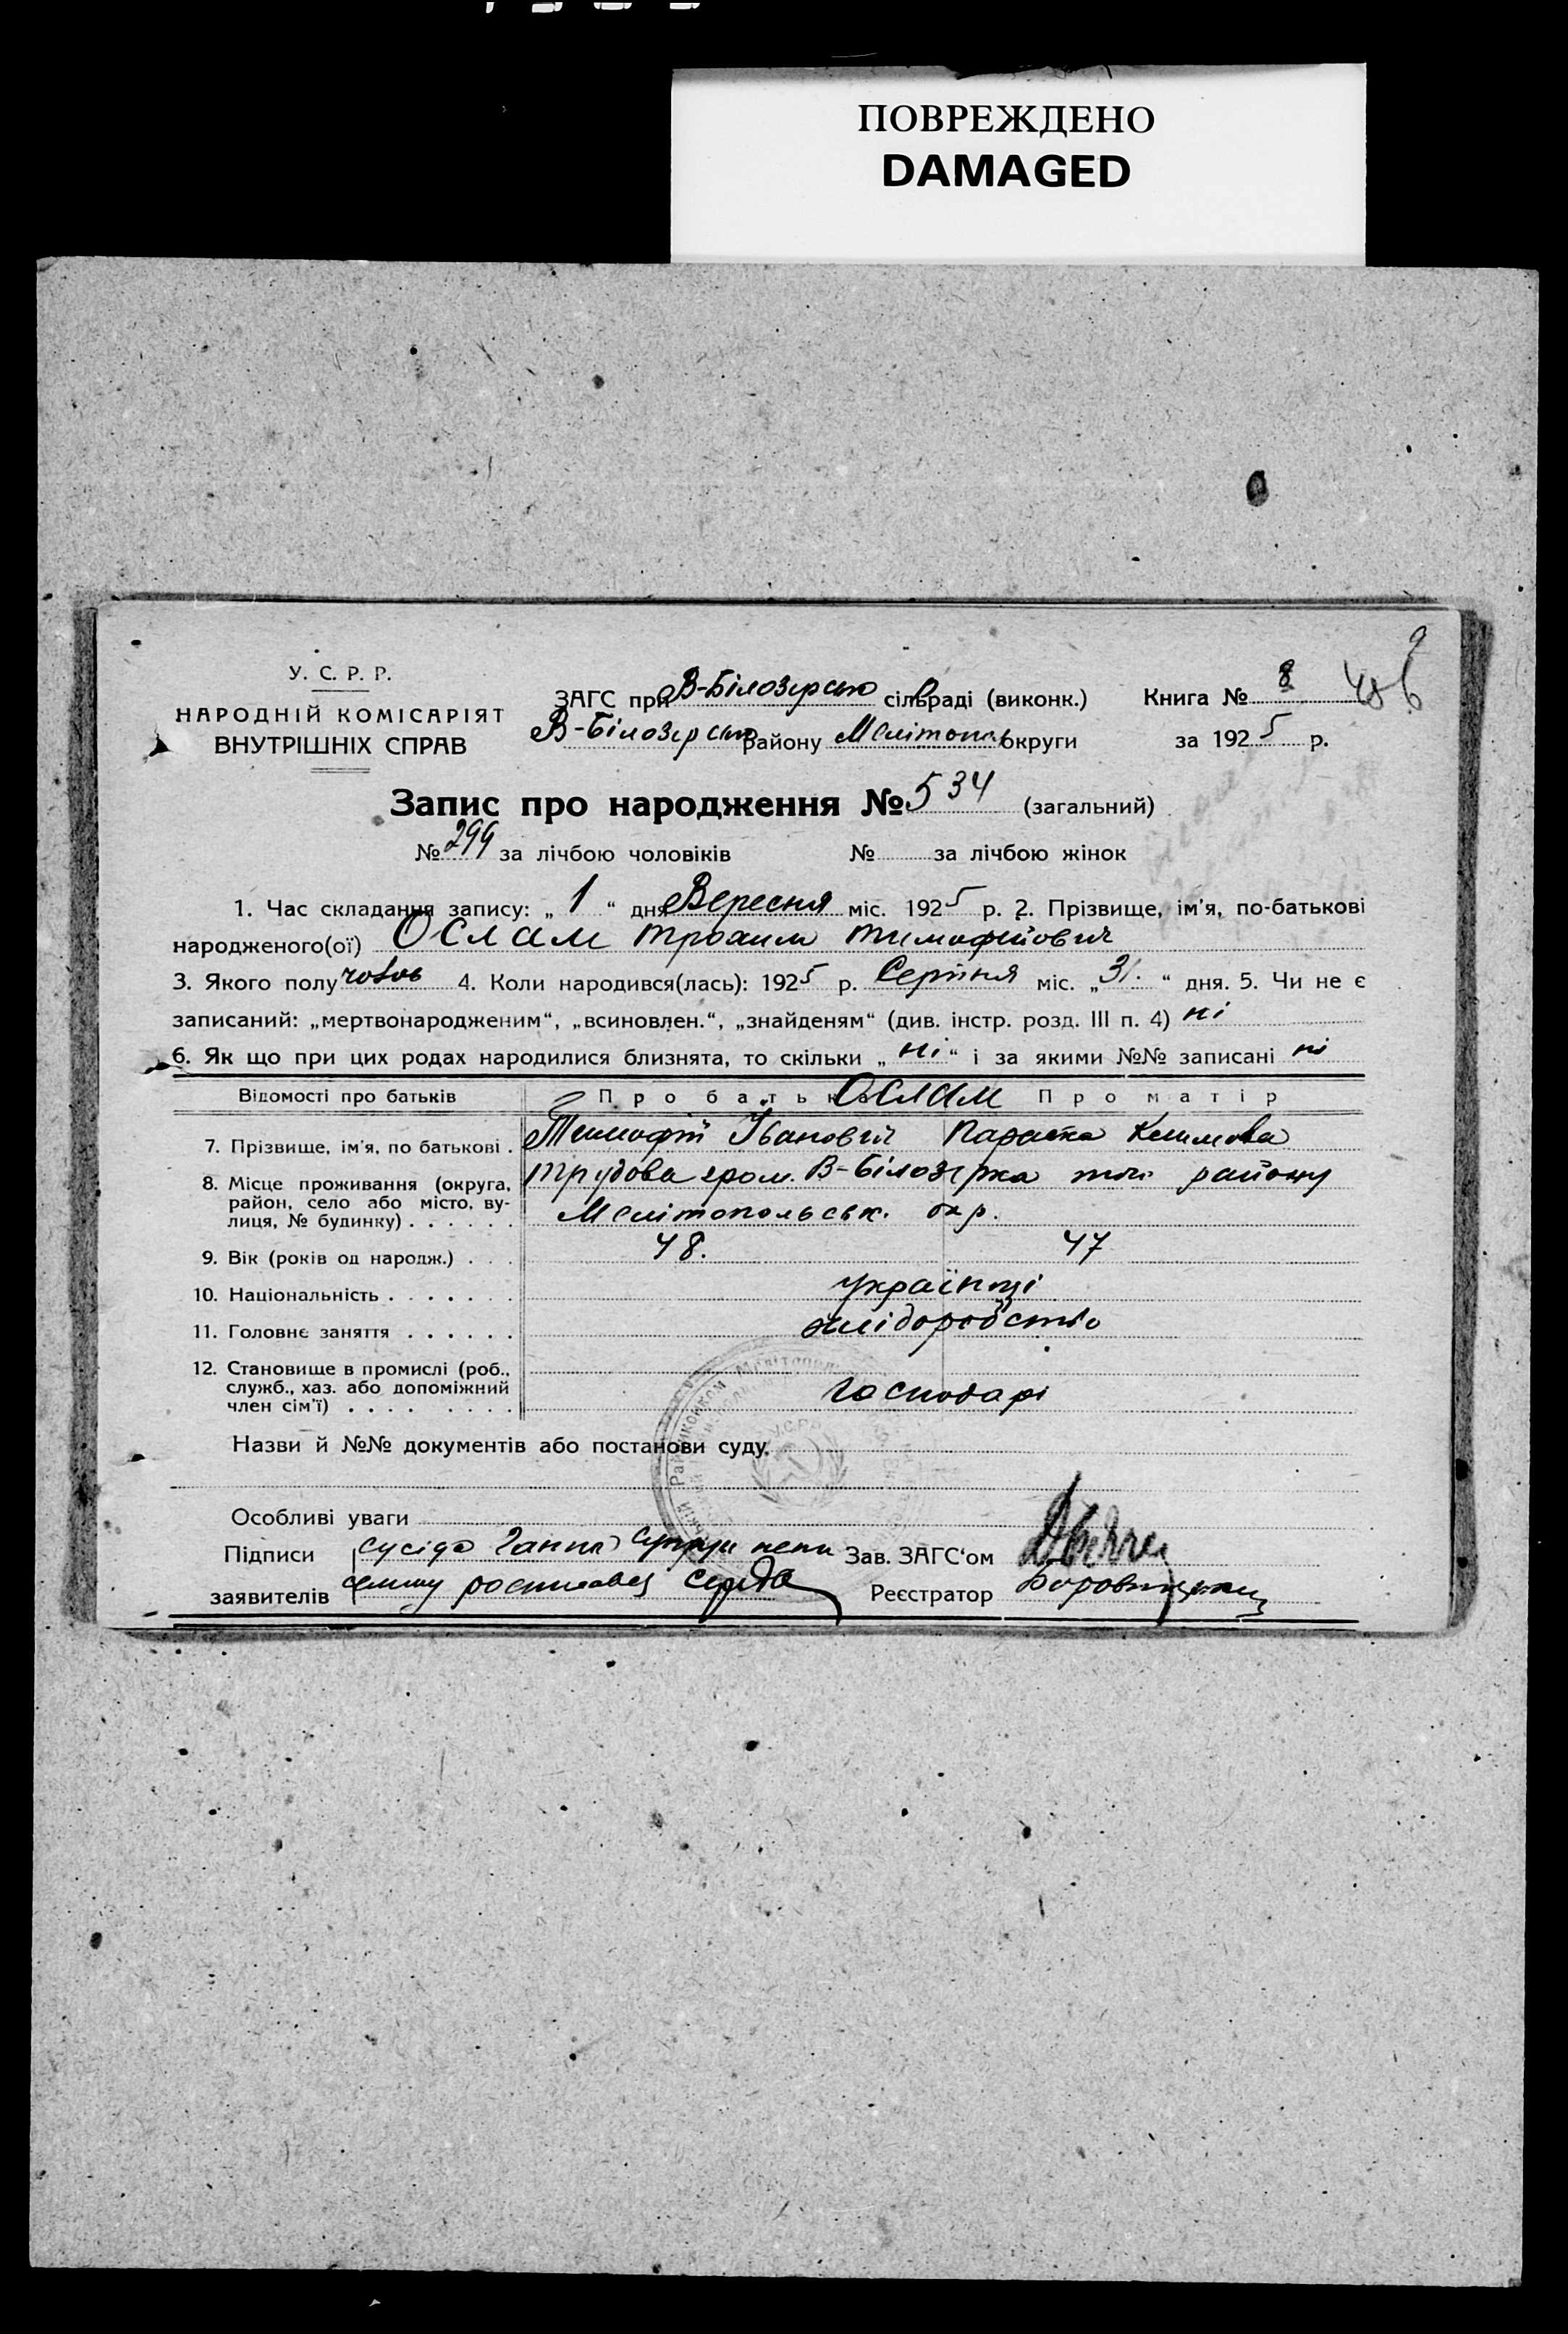 ПОВРЕЖДЕНО
DAMAGED
У. С. Р. Р.
НАРОДНІЙ КОМІСАРІЯТ
ВНУТРІШНІХ СПРАВ
ЗАГС при В-Білозірсько сільраді (виконк.)
В-Білозірськ району Мелітопол округи
Книга № 8
за 1925 р.
Запис про народження № 534 (загальний)
№ 299 за лічбою чоловіків № за лічбою жінок
1. Час складання запису: „ 1 “ дня Вересня міс. 1925 р. 2. Прізвище, ім'я, по-батькові
народженого(ої) Ослам Трохим Тимофійович
3. Якого полу чолов 4. Коли народився(лась): 1925 р. Серпня міс. „ 31. “ дня. 5. Чи не є
записаний: „мертвонародженим“, „всиновлен.“, „знайденям“ (див. інстр. розд. III п. 4) ні
6. Як що при цих родах народилися близнята, то скільки „ ні “ і за якими №№ записані ні
Відомості про батьків Про батька Ослам Про матір
7. Прізвище, ім'я, по батькові . Тимофій Іванович Параска Климова
8. Місце проживання (округа, район, село або місто, вулиця, № будинку) . . . . . . трудова гром. В-Білозірка району
Мелітопольськ. окр.
9. Вік (років од народж.) . . . 48. 47
10. Національність . . . . . . . українці
11. Головне заняття . . . . . . хліборобство
12. Становище в промислі (роб., служб., хаз. або допоміжний член сім'ї) . . . . . . . . . господарі
Назви й №№ документів або постанови суду.
Особливі уваги
Підписи сусіда Ганна Зав. ЗАГС'ом
заявителів Середа Реєстратор